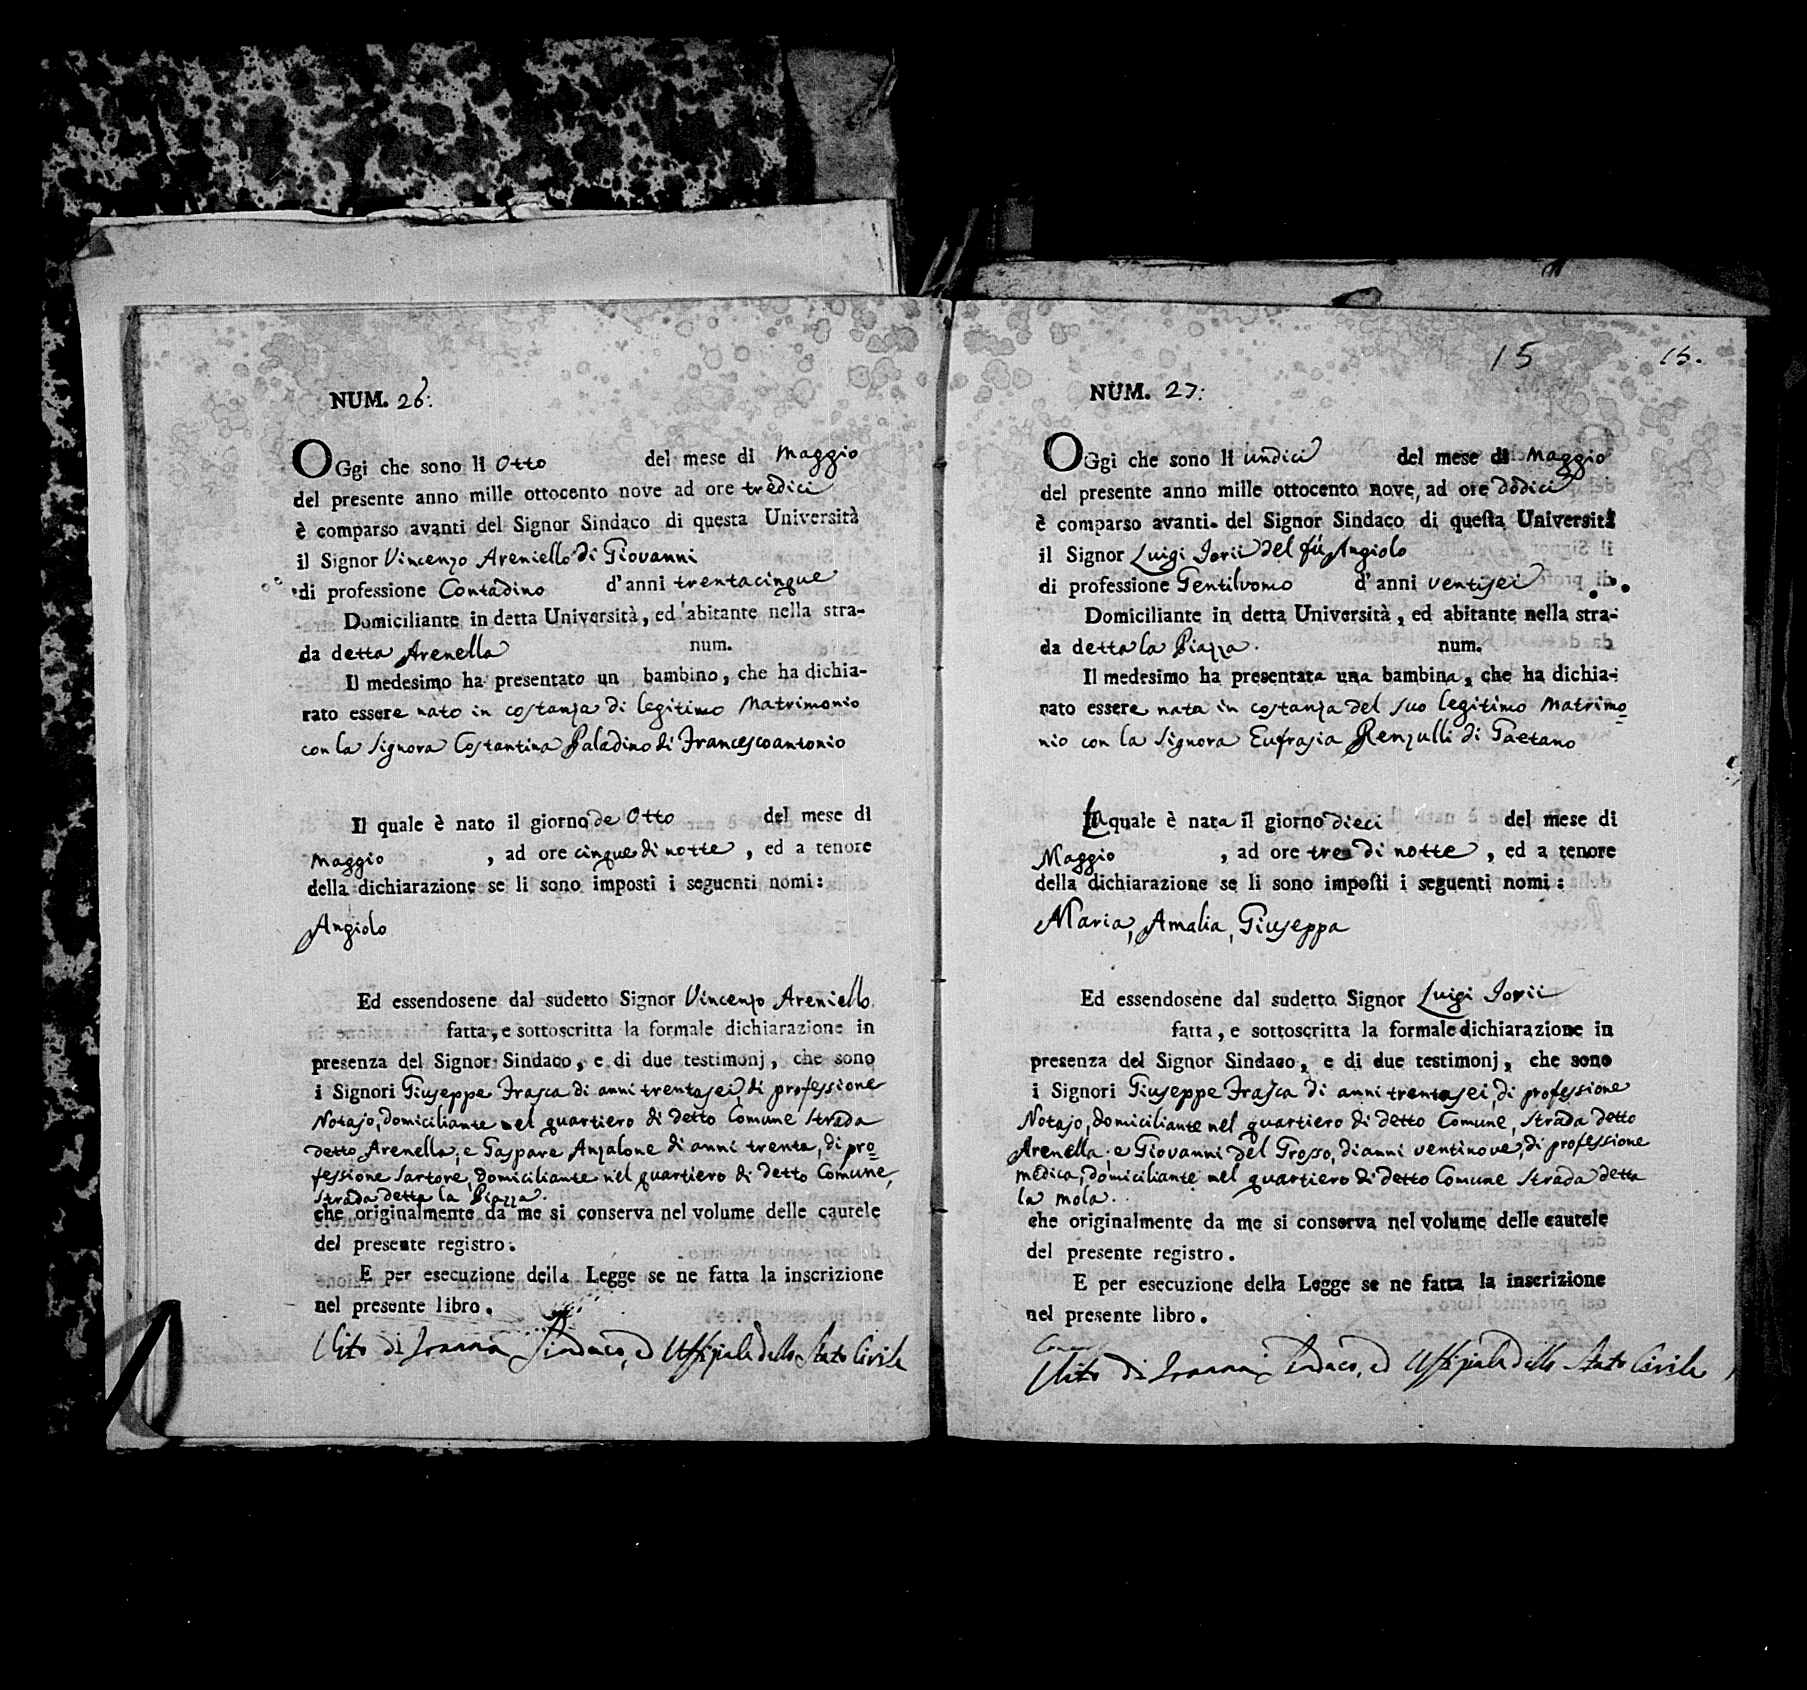 NUM. 26:
OGgi che sono li Otto del mese di Maggio
del presente anno mille ottocento nove ad ore tredici
è comparso avanti del Signor Sindaco di questa Università
il Signor Vincenzo Areniello di Giovanni
di professione Contadino d'anni trentacinque
Domiciliante in detta Università, ed abitante nella stra-
da detta Arenella num.
Il medesimo ha presentato un bambino, che ha dichia-
rato essere nato in costanza di legitimo Matrimonio
con la Signora Costantina Paladino di Francescoantonio
Il quale è nato il giorno de Otto del mese di
Maggio, ad ore cinque di notte, ed a tenore
della dichiarazione se li sono imposti i seguenti nomi:
Angiolo
Ed essendosene dal sudetto Signor Vincenzo Areniello
fatta, e sottoscritta la formale dichiarazione in
presenza del Signor Sindaco, e di due testimonj, che sono
i Signori Giuseppe Frasca di anni trentasei, di professione
Notajo, domiciliante nel quartiero di detto Comune strada
detto Arenella, e Gaspare Anzalone di anni trenta, di pro=
fessione Sartore, domiciliante nel quartiero di detto Comune,
strada detta la Piazza.
che originalmente da me si conserva nel volume delle cautele
del presente registro.
E per esecuzione della Legge se ne fatta la inscrizione
nel presente libro.
Vito di Ioanna Sindaco, ed Uffiziale dello Stato Civile
15 15.
NUM. 27:
OGgi che sono li undici del mese di Maggio
del presente anno mille ottocento nove, ad ore dodici
è comparso avanti del Signor Sindaco di questa Università
il Signor Luigi Iorii del fù Angiolo
di professione Gentiluomo d'anni ventisei
Domiciliante in detta Università, ed abitante nella stra-
da detta la Piazza. num.
Il medesimo ha presentata una bambina, che ha dichia-
rato essere nata in costanza del suo legitimo Matrimo=
nio con la Signora Eufrasia Renzulli di Gaetano
La quale è nata il giorno dieci del mese di
Maggio, ad ore tre di notte, ed a tenore
della dichiarazione se li sono imposti i seguenti nomi:
Maria, Amalia, Giuseppa
Ed essendosene dal sudetto Signor Luigi Iorii
fatta, e sottoscritta la formale dichiarazione in
presenza del Signor Sindaco, e di due testimonj, che sono
i Signori Giuseppe Frasca di anni trentasei, di professione
Notajo, domiciliante nel quartiero di detto Comune, strada detto
Arenella, e Giovanni del Grosso, di anni ventinove, di professione
medica, domiciliante nel quartiero di detto Comune strada detta
la mola.
che originalmente da me si conserva nel volume delle cautele
del presente registro.
E per esecuzione della Legge se ne fatta la inscrizione
nel presente libro.
Vito di Ioanna Sindaco, ed Uffiziale dello Stato Civile